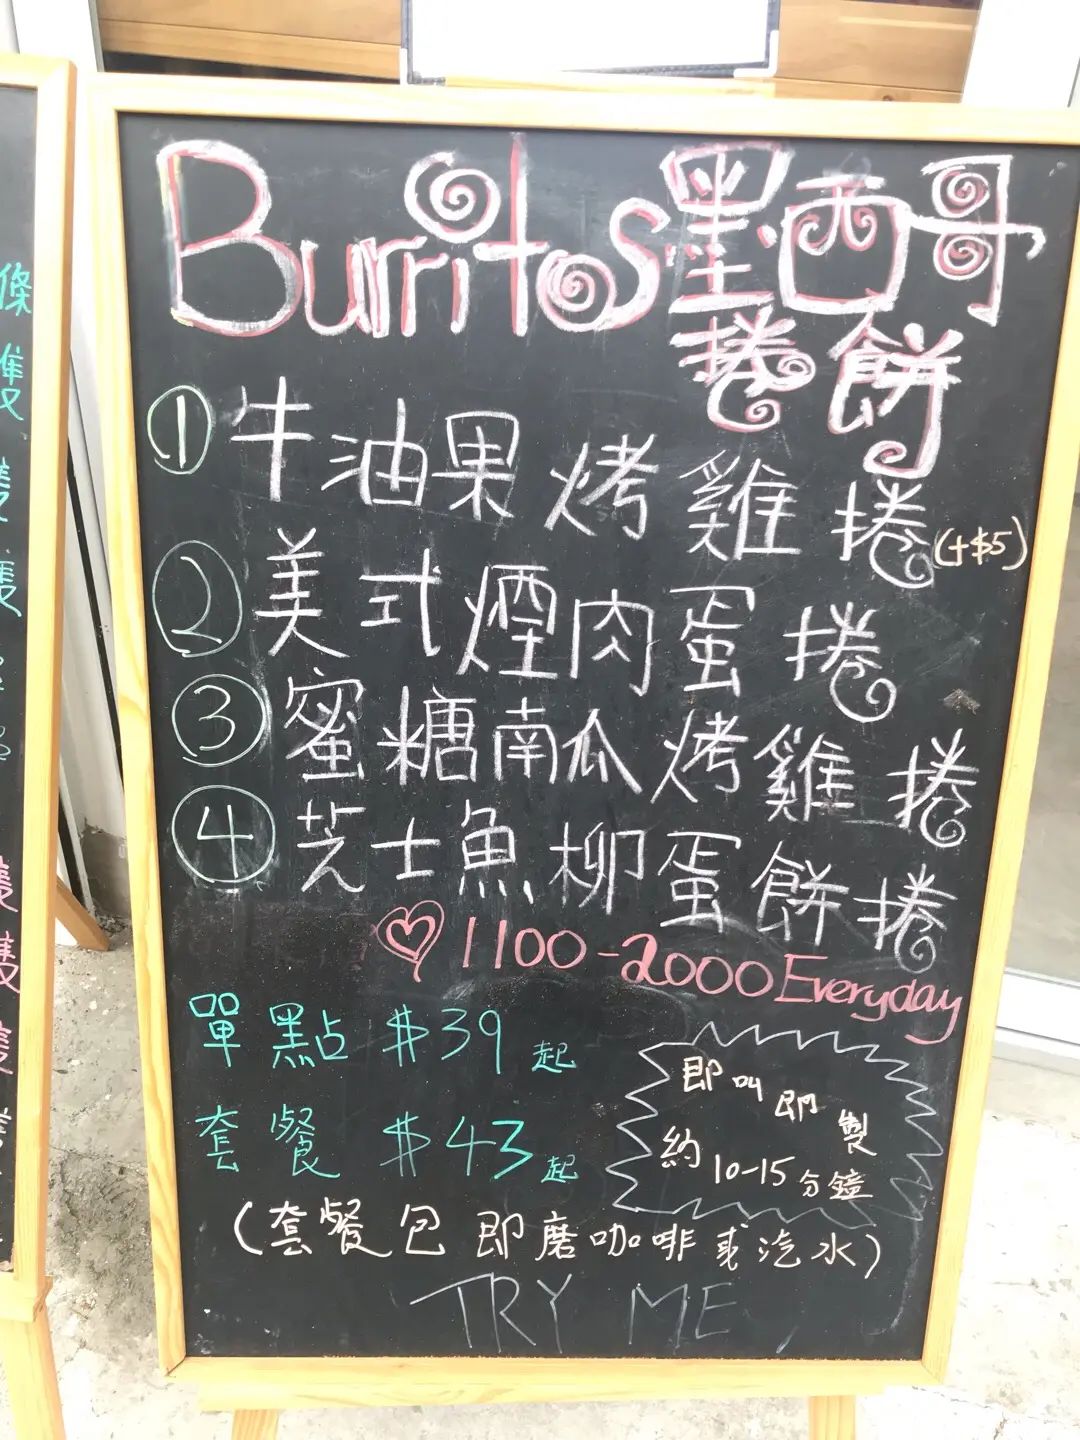 Burritos墨西哥
捲餅
① 牛油果烤雞捲(+$5)
② 美式煙肉蛋捲
③ 蜜糖南瓜烤雞捲
④ 芝士魚柳蛋餅捲
♡ 1100-2000 Everyday
單點 $39起
套餐 $43起
即叫即製
約10-15分鐘
(套餐包即磨咖啡或汽水)
TRY ME